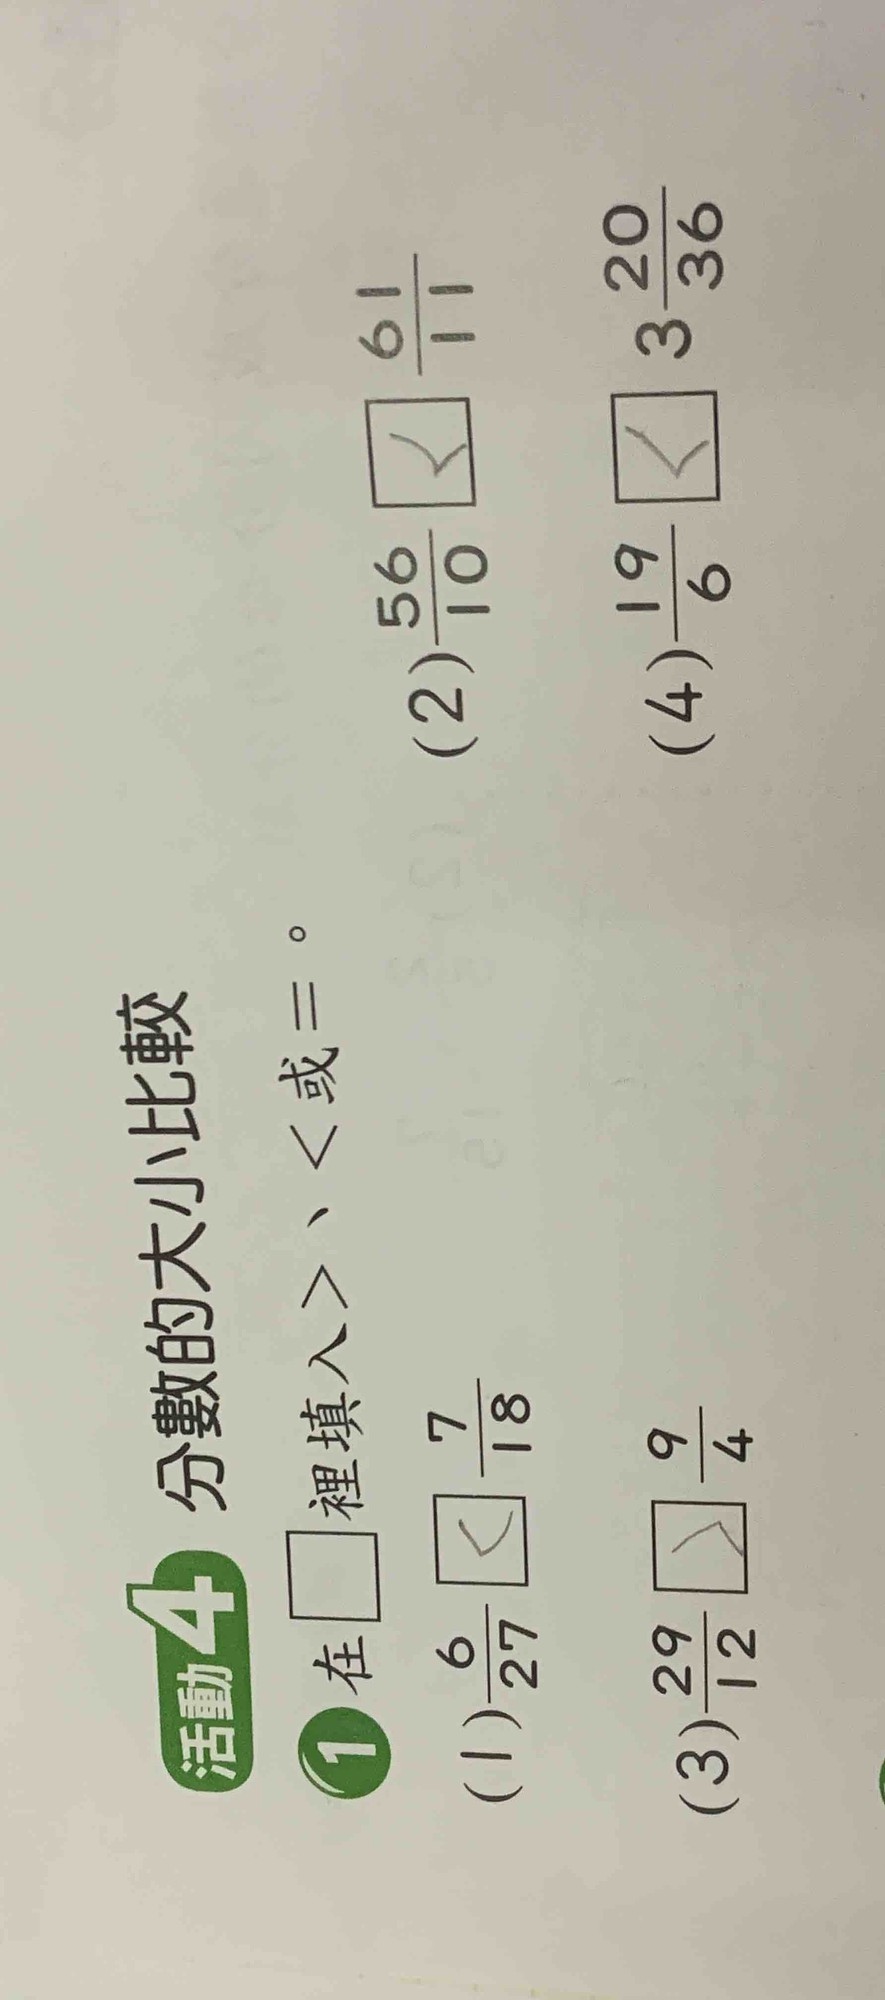 活動4 分數的大小比較
1 在□裡填入>、<或=。
(1) 6/27 < 7/18 (2) 56/10 < 61/11
(3) 29/12 > 9/4 (4) 19/6 < 3 20/36